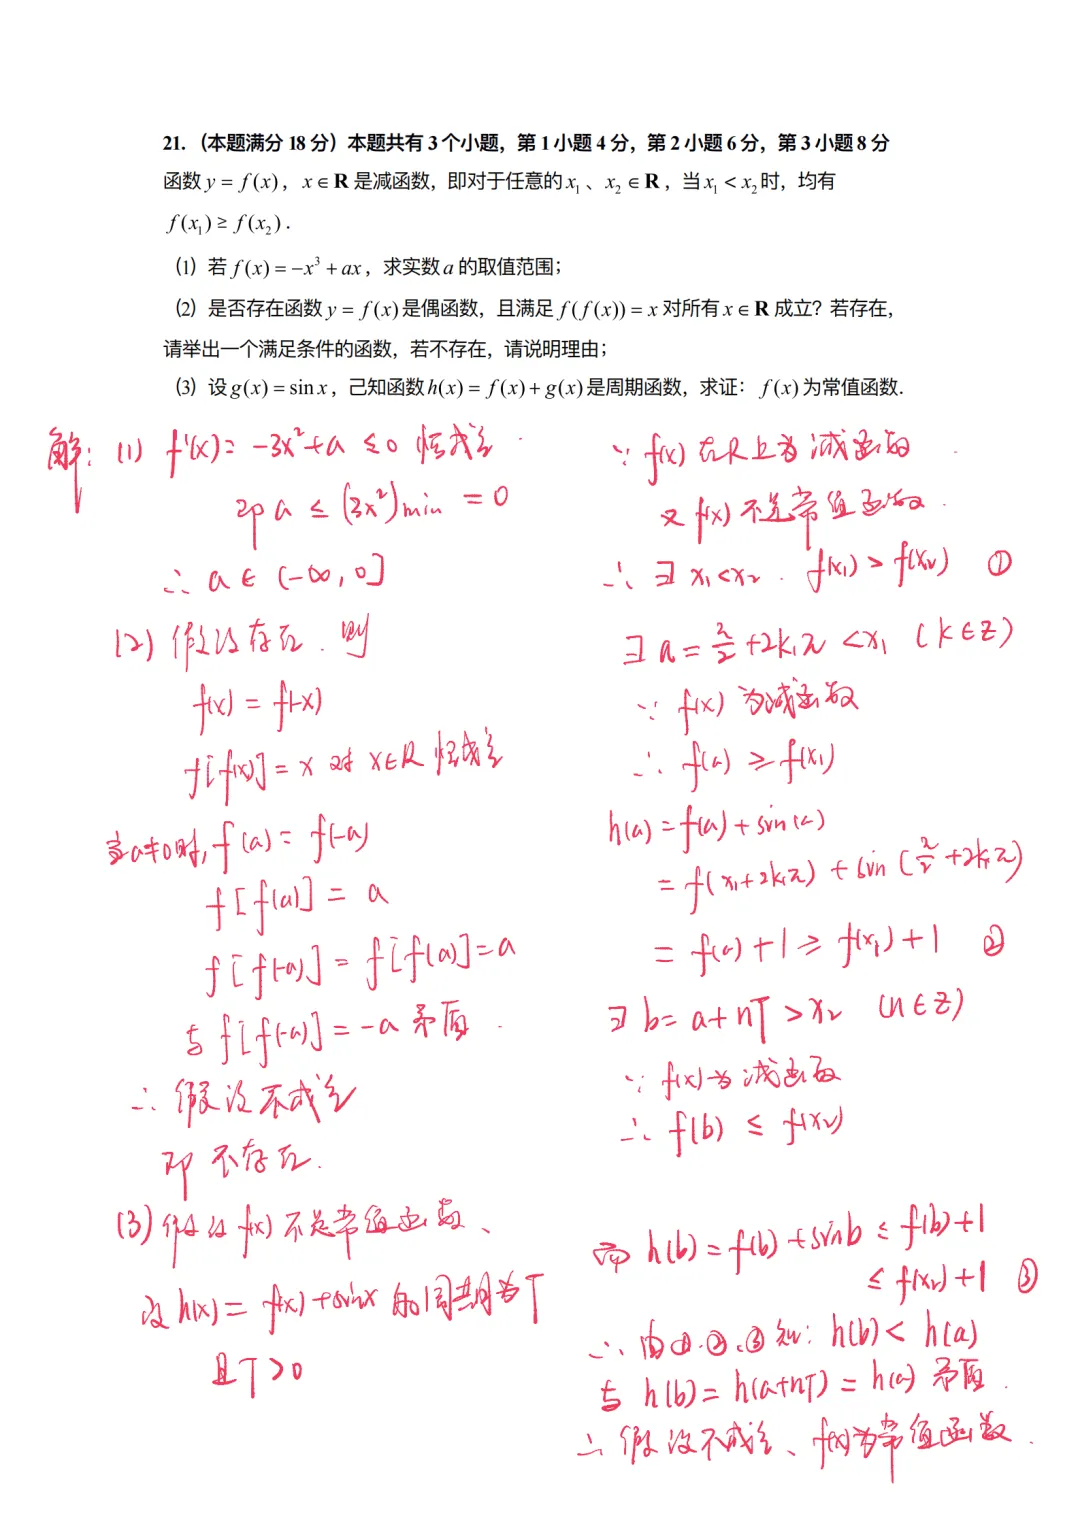 21.（本题满分 18 分）本题共有 3 个小题，第 1 小题 4 分，第 2 小题 6 分，第 3 小题 8 分
函数 y = f(x)，x ∈ R 是减函数，即对于任意的 x₁、x₂ ∈ R，当 x₁ < x₂ 时，均有
f(x₁) ≥ f(x₂).
(1) 若 f(x) = −x³ + ax，求实数 a 的取值范围；
(2) 是否存在函数 y = f(x) 是偶函数，且满足 f(f(x)) = x 对所有 x ∈ R 成立？若存在，
请举出一个满足条件的函数，若不存在，请说明理由；
(3) 设 g(x) = sin x，己知函数 h(x) = f(x) + g(x) 是周期函数，求证：f(x) 为常值函数.
解：(1) f'(x) = -3x²+a ≤0 恒成立.
即 a ≤ (3x²)min = 0
∴ a ∈ (-∞, 0]
(2) 假设存在. 则
f(x) = f(-x)
f[f(x)] = x 对 x∈R 恒成立
当a≠0时, f(a) = f(-a)
f[f(a)] = a
f[f(-a)] = f[f(a)] = a
与 f[f(-a)] = -a 矛盾.
∴ 假设不成立
即 不存在.
(3) 假设 f(x) 不是常值函数、
设 h(x) = f(x)+sinx 的周期为T
且T>0
∵ f(x) 在R上为减函数.
又 f(x) 不是常值函数.
∴ ∃ x₁<x₂. f(x₁) > f(x₂) ①
∃ a = π/2 +2k₁π <x₁ (k∈Z)
∵ f(x) 为减函数
∴ f(a) ≥ f(x₁)
h(a) = f(a) + sin(a)
= f(x₁+2k₁π) + sin(π/2 +2k₁π)
= f(a) +1 ≥ f(x₁)+1 ②
∃ b= a+nT >x₂ (n∈Z)
∵ f(x)为减函数
∴ f(b) ≤ f(x₂)
而 h(b) = f(b) +sinb ≤ f(b)+1
≤ f(x₂)+1 ③
∴ 由①.②.③知: h(b)< h(a)
与 h(b)= h(a+nT) = h(a) 矛盾.
∴ 假设不成立、f(x)为常值函数.